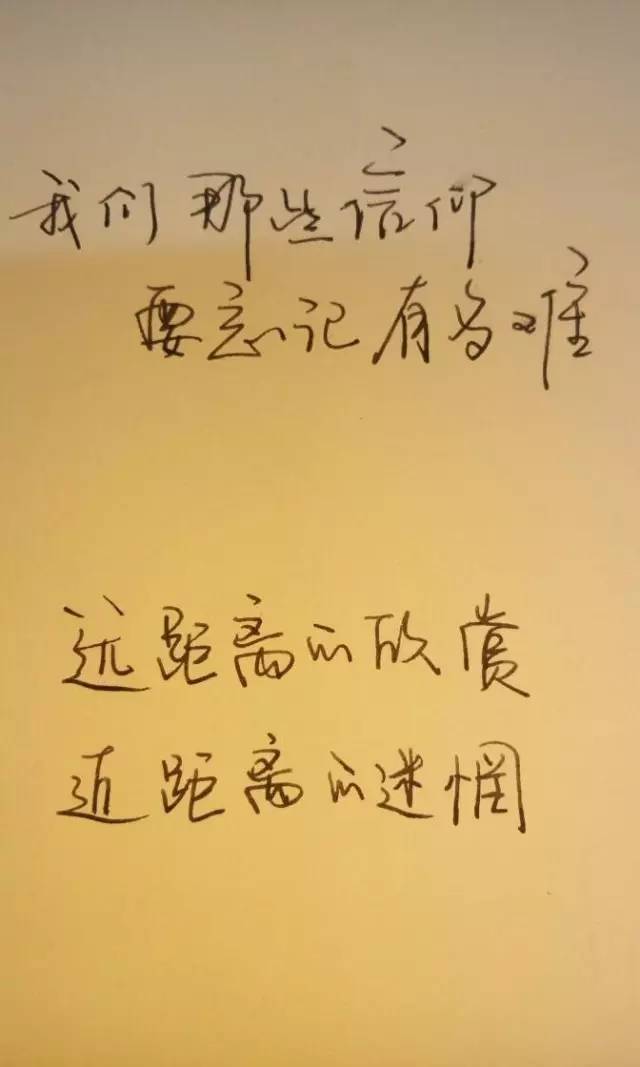 我们那些信仰
要忘记有多难
远距离的欣赏
近距离的迷惘